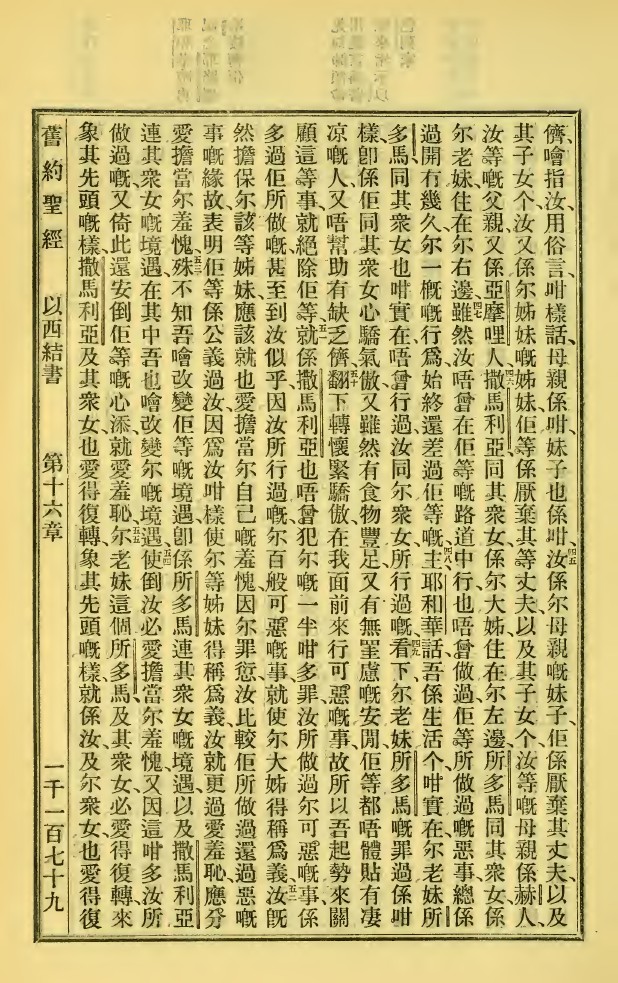 儕噲指汝用俗言咁樣話、母親係咁妹子也係咁、四五汝係尔母親嘅妹子、佢係厭棄其丈夫、以及
其子女个、汝又係尔姊妹嘅姊妹、佢等係厭棄其等丈夫以及其子女个、汝等嘅母親係赫人、
汝等嘅父親又係亞摩哩人、四六撒馬利亞同其衆女係尔大姊住在尔左邊、所多馬同其衆女係
尔老妹住在尔右邊、四七雖然汝唔曾在佢等嘅路道中行也唔曾做過佢等所做過嘅惡事、總係
過開有幾久尔一概嘅行爲始終還差過佢等嘅、四八主耶和華話、吾係生活个、咁實在尔老妹所
多馬同其衆女也咁實在唔曾行過汝同尔衆女所行過嘅、四九看下尔老妹所多馬嘅罪過係咁
樣、卽係佢同其衆女心驕氣傲、又雖然有食物豐足又有無罣慮嘅安閒、佢等都唔體貼有凄
凉嘅人、又唔幫助有缺乏儕、五十翻下轉懷緊驕傲在我面前來行可惡嘅事、故所以吾起勢來關
顧這等事就絕除佢等、五一就係撒馬利亞也唔曾犯尔嘅一半咁多罪、汝所做過尔可惡嘅事係
多過佢所做嘅、甚至到汝似乎因汝所行過嘅尔百般可惡嘅事、就使尔大姊得稱爲義、五二汝旣
然擔保尔該等姊妹、應該就也愛擔當尔自己嘅羞愧、因尔罪愆汝比較佢所做過還過惡嘅
事嘅緣故、表明佢等係公義過汝、因爲汝咁樣使尔等姊妹得稱爲義、汝就更過愛羞恥、應分
愛擔當尔羞愧、五三殊不知吾噲改變佢等嘅境遇、卽係所多馬連其衆女嘅境遇以及撒馬利亞
連其衆女嘅境遇、在其中吾也噲改變尔嘅境遇、五四使倒汝必愛擔當尔羞愧、又因這咁多汝所
做過嘅、又倚此還安倒佢等嘅心添、就愛羞恥、五五尔老妹這個所多馬及其衆女必愛得復轉來
象其先頭嘅樣、撒馬利亞及其衆女也愛得復轉象其先頭嘅樣、就係汝及尔衆女也愛得復
舊約聖經 以西結書 第十六章 一千一百七十九